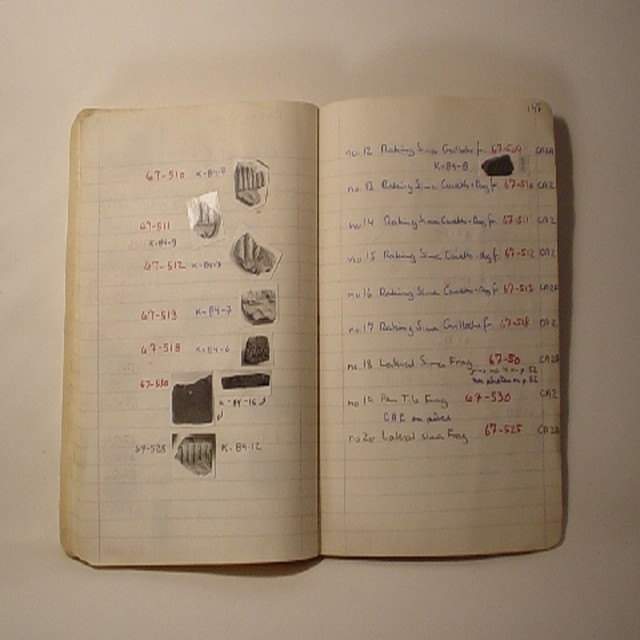 67-510 K-84-7
67-511
K-84-9
67-512 K-84-7
67-513 K-84-7
67-518 K-84-6
67-530
K-84-16
67-525 K-84-12
147
no. 12 Raking Sima Guilloche fr. 67-509
K-84-8
no. 13 Raking Sima Cavetto + Reg fr. 67-510 CA2
no. 14 Raking Sima Cavetto + Reg fr. 67-511 CA2
no. 15 Raking Sima Cavetto + Reg fr. 67-512 CA2
no. 16 Raking Sima Cavetto + Reg fr. 67-513
no. 17 Raking Sima Guilloche fr. 67-518 CA2
no. 18 Lateral Sima Frag 67-50
no. 19 Pan Tile Frag 67-530 CA2
no 20 Lateral sima Frag 67-525